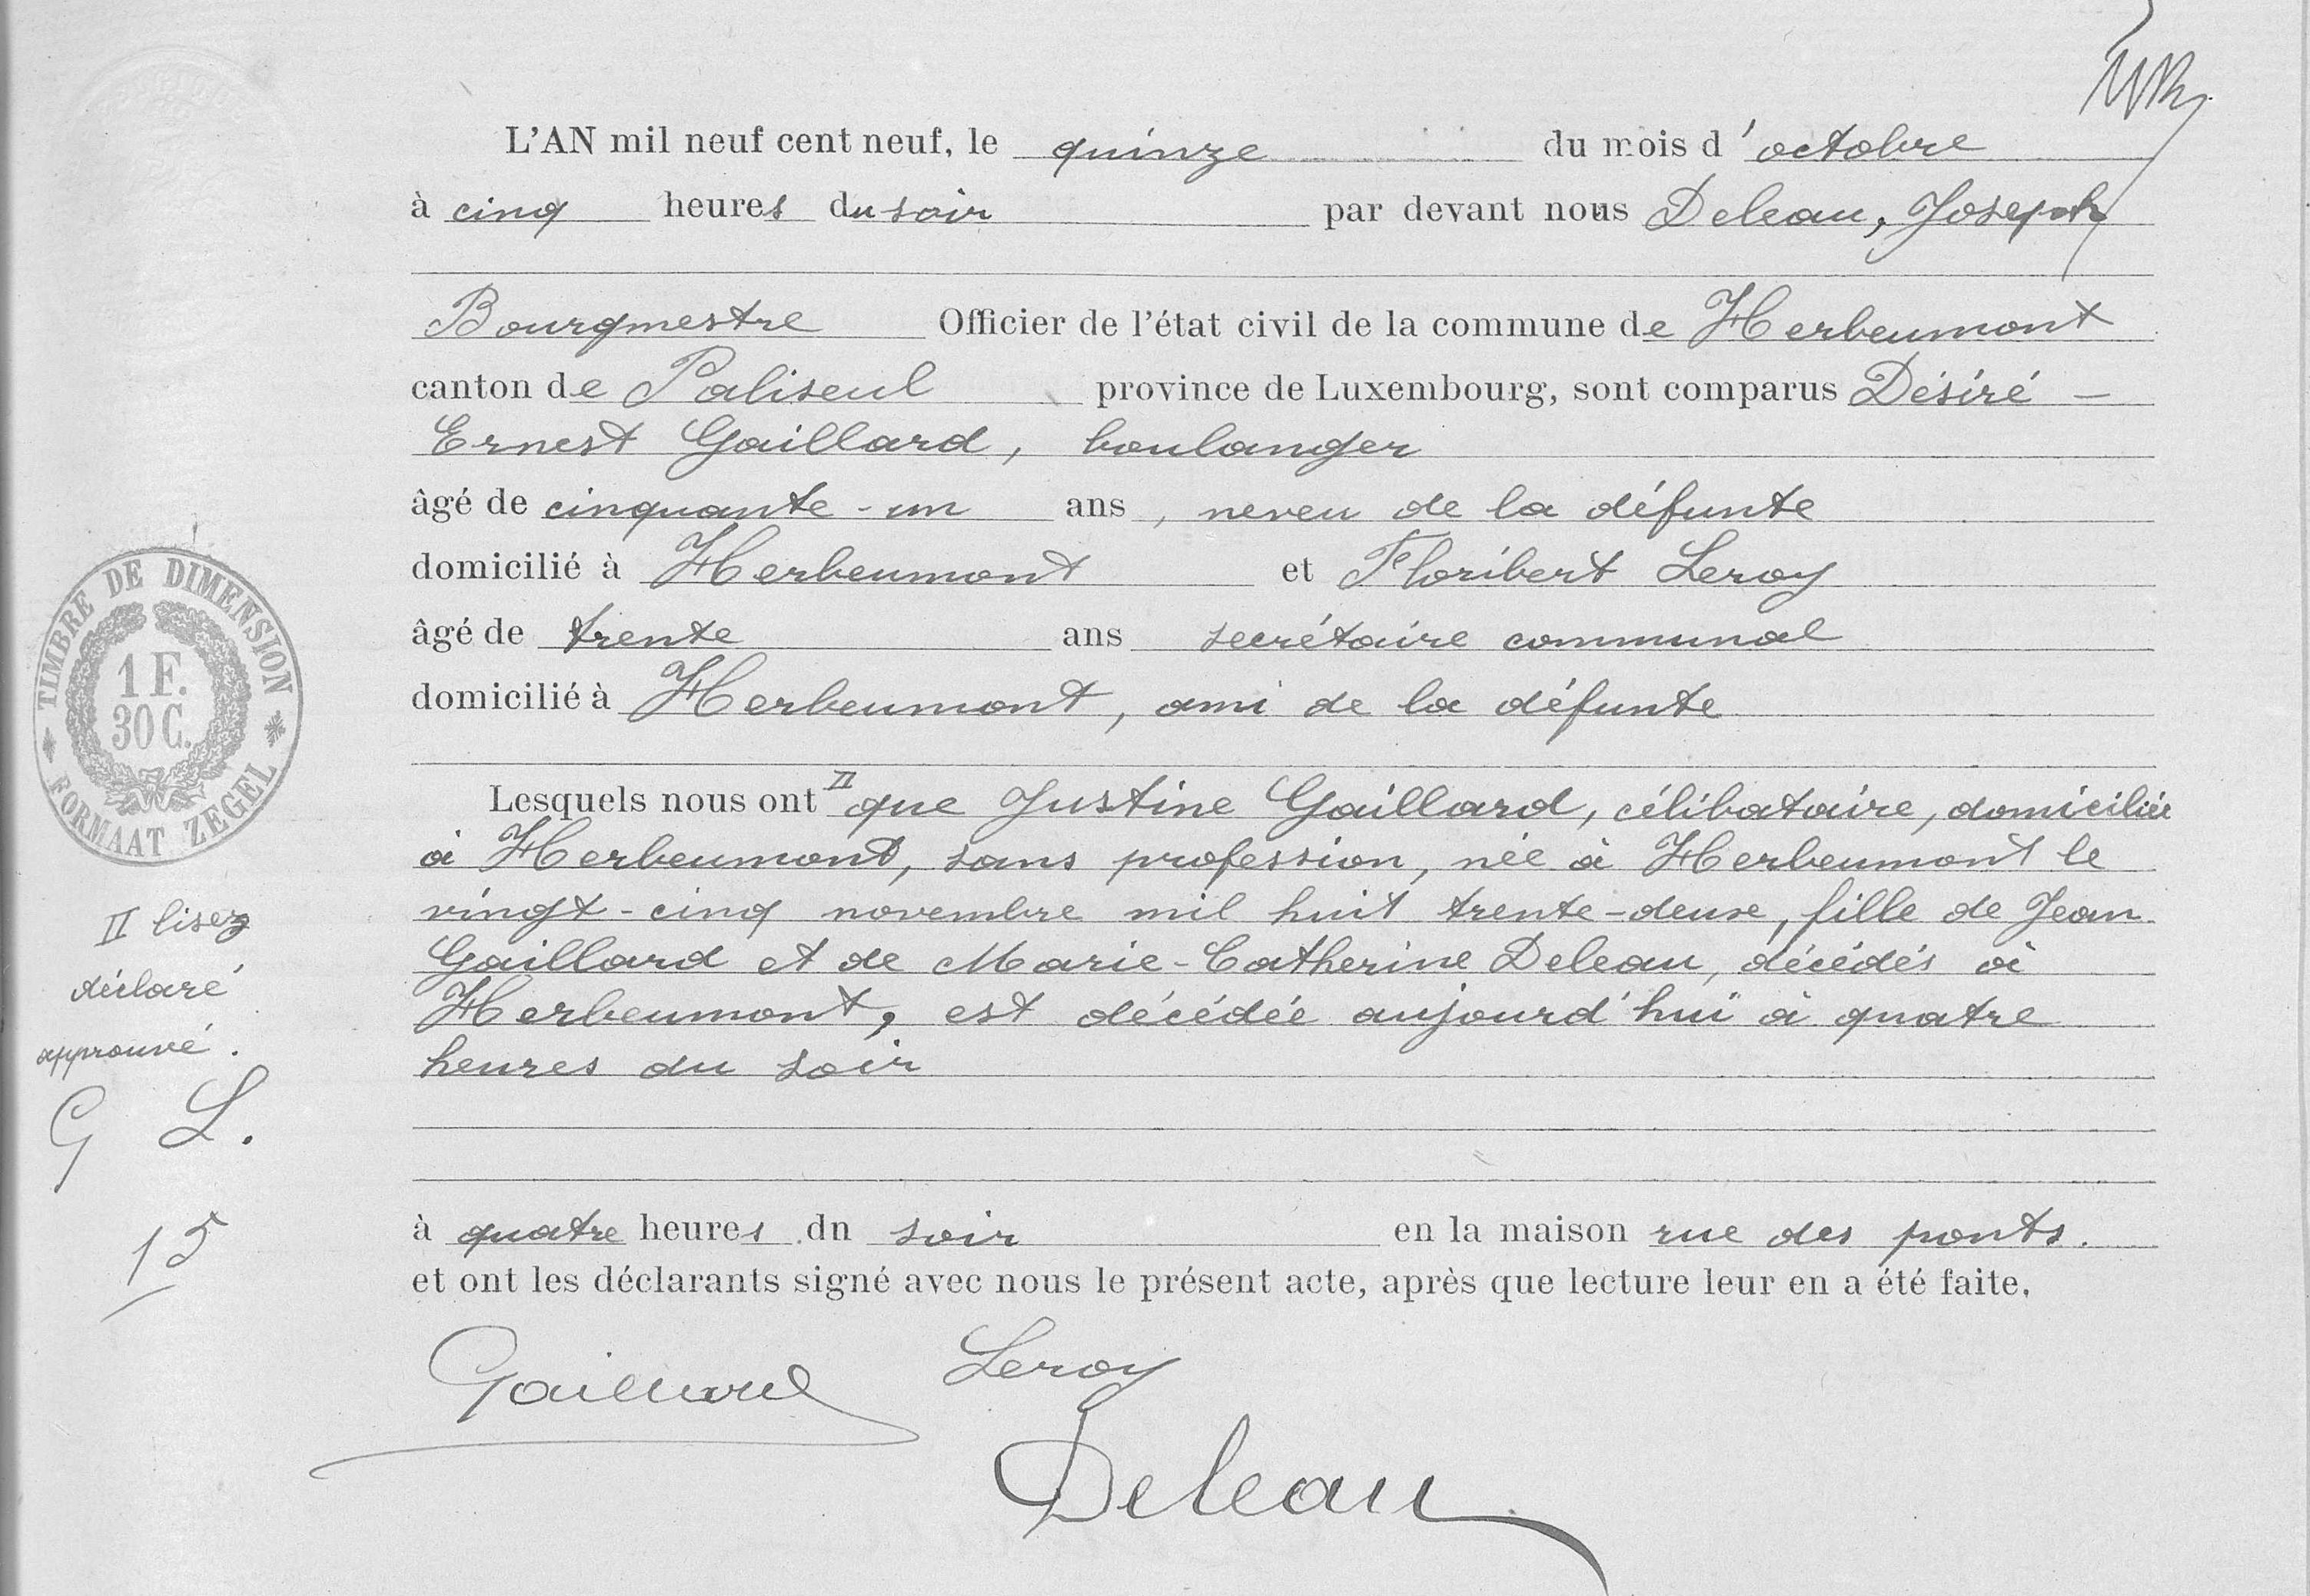 L'AN mil neuf cent neuf, le quinze du mois d'octobre
à cinq heures du soir par devant nous Deleau, Joseph
Bourgmestre Officier de l'état civil de la commune de Herbeumont
canton de Paliseul province de Luxembourg, sont comparus Désiré -
Ernest Gaillard, boulanger
âgé de cinquante-un ans, neveu de la défunte
domicilié à Herbeumont et Floribert Leroy
âgé de trente ans secrétaire communal
domicilié à Herbeumont, ami de la défunte
Lesquels nous ont II que Justine Gaillard, célibataire, domiciliée
à Herbeumont, sans profession, née à Herbeumont le
vingt-cinq novembre mil huit trente-deux, fille de Jean
Gaillard et de Marie-Catherine Deleau, décédés à
Herbeumont, est décédée aujourd'hui à quatre
heures du soir
à quatre heures du soir en la maison rue des ponts.
et ont les déclarants signé avec nous le présent acte, après que lecture leur en a été faite.
Gaillard Leroy
Deleau
TIMBRE DE DIMENSION
1 F.
30 C.
FORMAAT ZEGEL
II lisez
déclaré
approuvé.
G L.
15